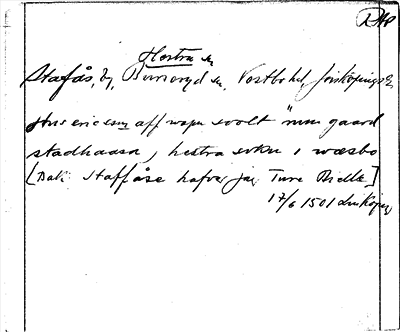 DMP
Hestra sn
Stafås, by, Burseryd sn, Västbo hd, Jönköpings l.
"min gaard
stadhaasa, hestra sokn i wæsbo
[Dat: Staffåse hafver jag Ture Bielke]
17/6 1501 Linköping